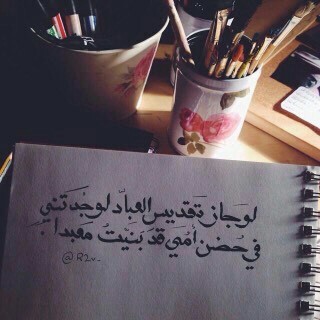 لو جاز تقديس العباد لوجدتني
في حضن أمي قد بنيت معبدا
@R2v_